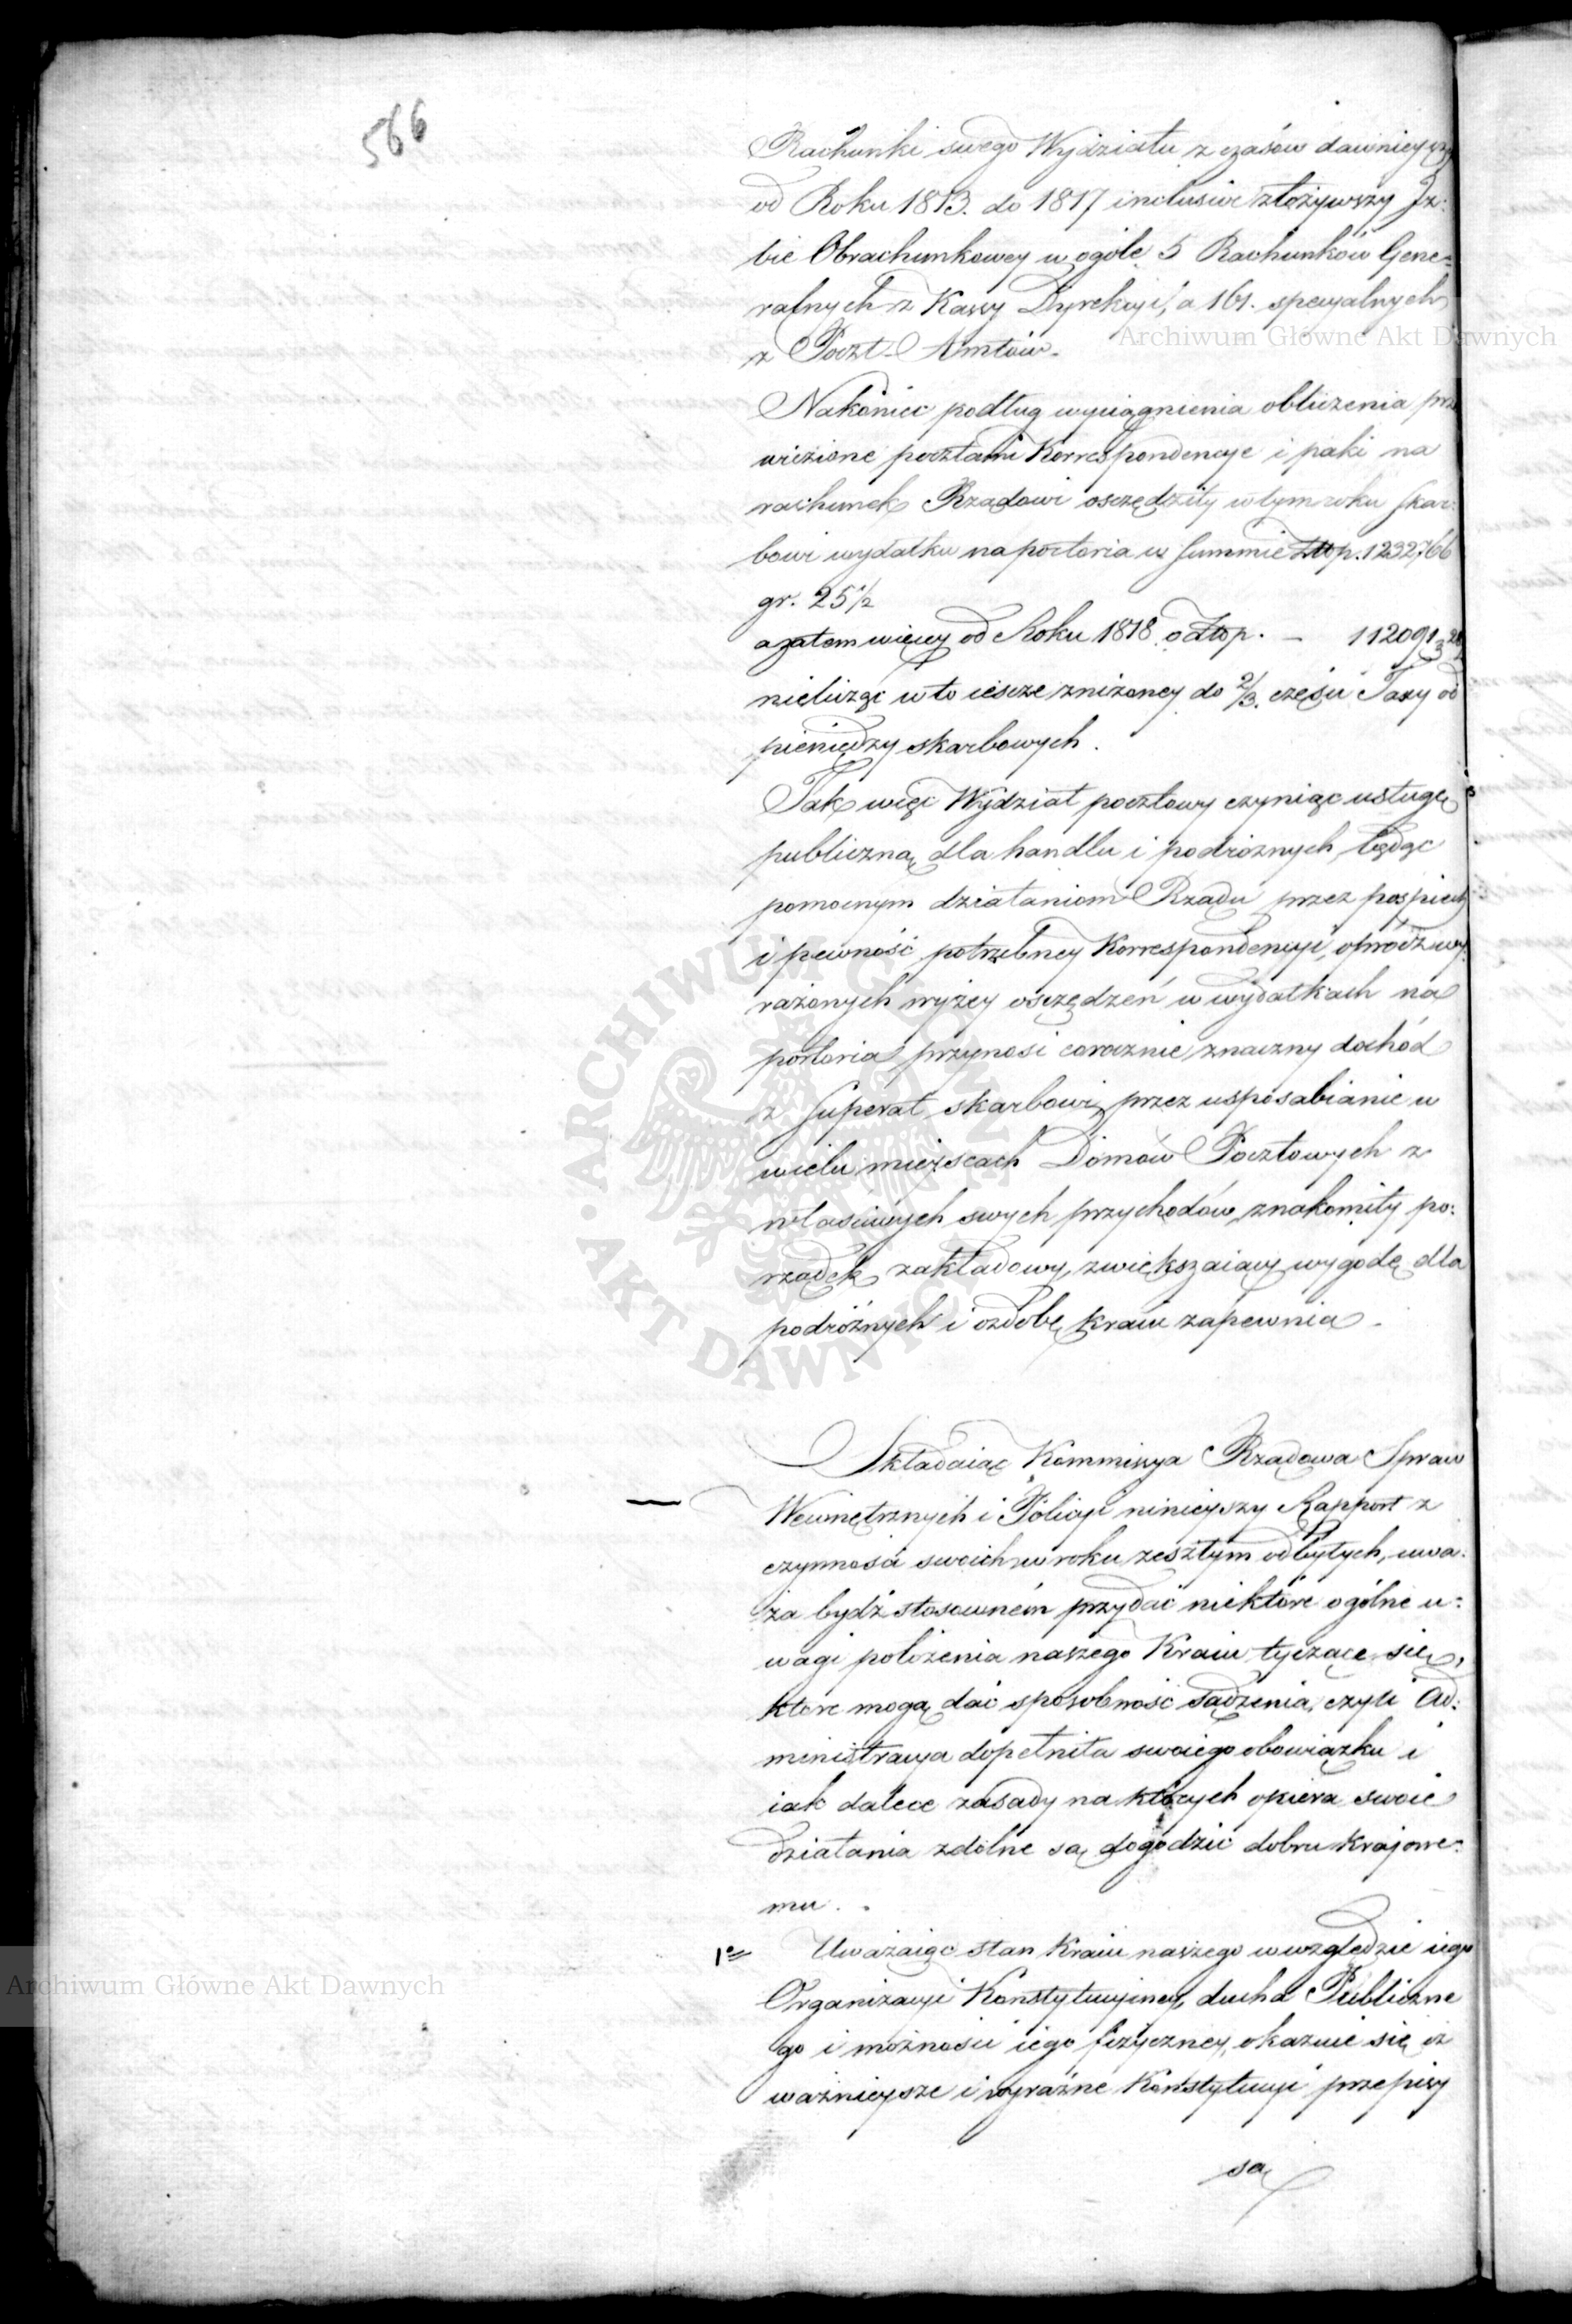 566
Rachunki swego Wydziału z czasów dawnieyszy
od Roku 1813. do 1817 inclusive złożywszy Iz:
bie Obrachunkowey w ogóle 5 Rachunków Gene:
ralnych z Kassy Dyrekcyi, a 161. specyalnych
z Poczt-Amtów.
Nakoniec podług wyciągnienia obliczenia prze
wiezione pocztami Korrespondencye i paki na
rachunek Rządowi oszczędziły w tym roku Skar:
bowi wydatku na portoria w Summie Złop. 1232766
gr. 25 1/2
a zatem więcey od Roku 1818 o Złop. — 112091
nielicząc w to iescze zniżoney do 2/3. części Taxy od
pieniędzy skarbowych.
Tak więc Wydział pocztowy czyniąc usługę
publiczną dla handlu i podróżnych, będąc
pomocnym działaniom Rządu przez pospiech
i pewność potrzebney Korrespondencyi, oprócz wy
rażonych wyżey osczędzeń w wydatkach na
portoria przynosi corocznie znaczny dochód
z Superat skarbowi, przez usposabianie w
wielu mieyscach Domów Pocztowych z
właściwych swych przychodów, znakomity po:
rządek zakładowy, zwiększaiący wygodę dla
podróżnych i ozdobę kraiu zapewnia.
Składaiąc Kommissya Rządowa Spraw
Wewnętrznych i Policyi ninieyszy Rapport z
czynności swoich w roku zeszłym odbytych, uwa:
ża bydź stosowném przydać niektóre ogólne u:
wagi położenia naszego Kraiu tyczące się,
które mogą dać sposobność sądzenia, czyli Ad:
ministracya dopełniła swoiego obowiązku i
iak dalece zasady na których opiera swoie
działania zdolne są dogodzić dobru krajowe:
mu.
1o Uważaiąc stan Kraiu naszego w względzie iego
Organizacyi Konstytucyiney, ducha Publiczne
go i możności iego fizyczney, okazuie się iż
ważnieysze i wyraźne Konstytucyi przepisy
są
Archiwum Główne Akt Dawnych
Archiwum Główne Akt Dawnych
ARCHIWUM GŁÓWNE AKT DAWNYCH